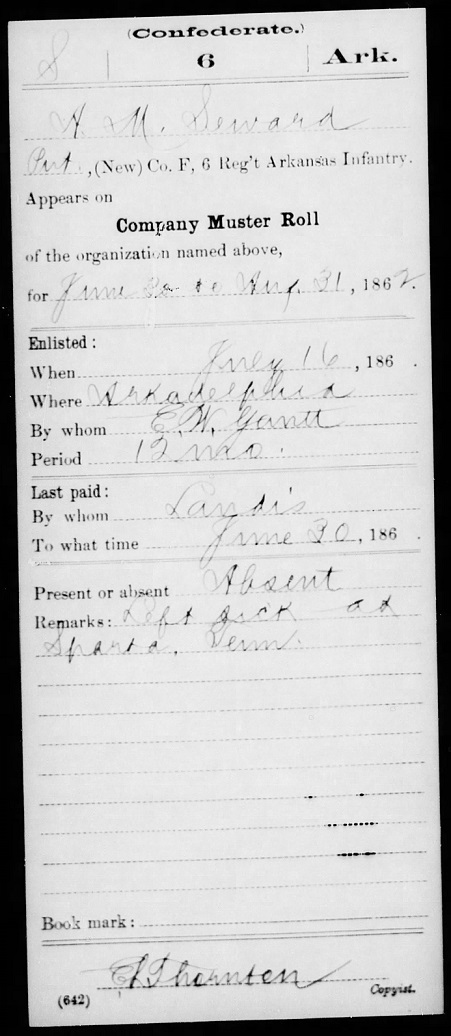 (Confederate.)
S 6 Ark.
A. M. Seward
Pvt., (New) Co. F, 6 Reg't Arkansas Infantry.
Appears on
Company Muster Roll
of the organization named above,
for June 30 to Aug. 31, 1862.
Enlisted:
When July 16, 186 .
Where Arkadelphia
By whom E. W. Gantt
Period 12 mo.
Last paid:
By whom Landis
To what time June 30, 186 .
Present or absent Absent
Remarks: Left sick at
Sparta, Tenn.
Book mark:
Thornton
(642) Copyist.